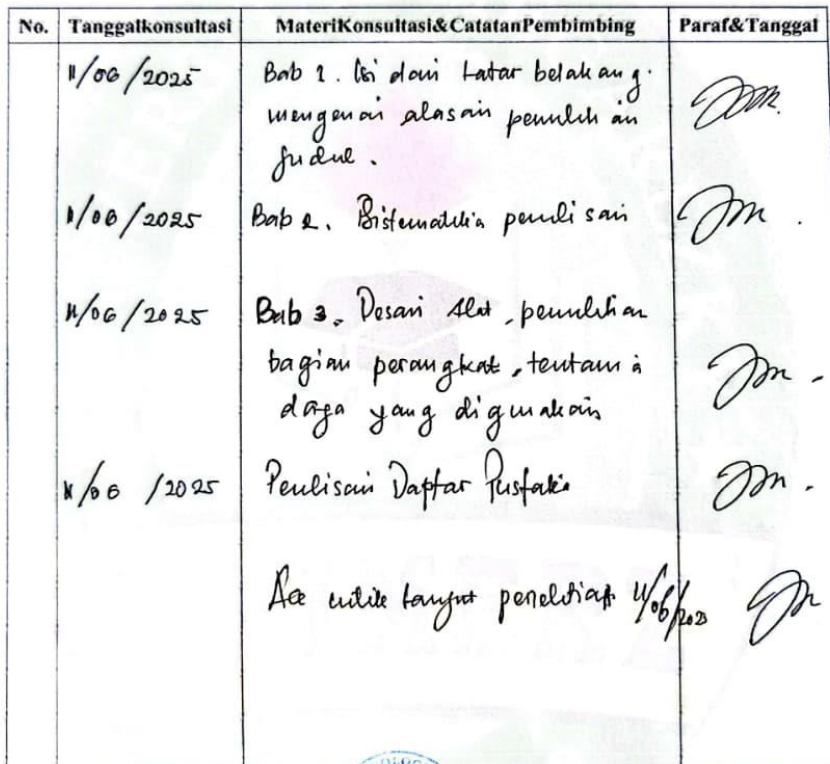 No. Tanggalkonsultasi MateriKonsultasi&CatatanPembimbing Paraf&Tanggal
11/06/2025 Bab 1. Isi dari Latar belakang.
mengenai alasan penulisan
Judul.
11/06/2025 Bab 2. Sistematika penulisan
11/06/2025 Bab 3. Desain Alat, penelitian
bagian perangkat, tentang
daya yang digunakan
11/06 /2025 Penulisan Daftar Pustaka
Acc untuk lanjut penelitian 11/06/2025